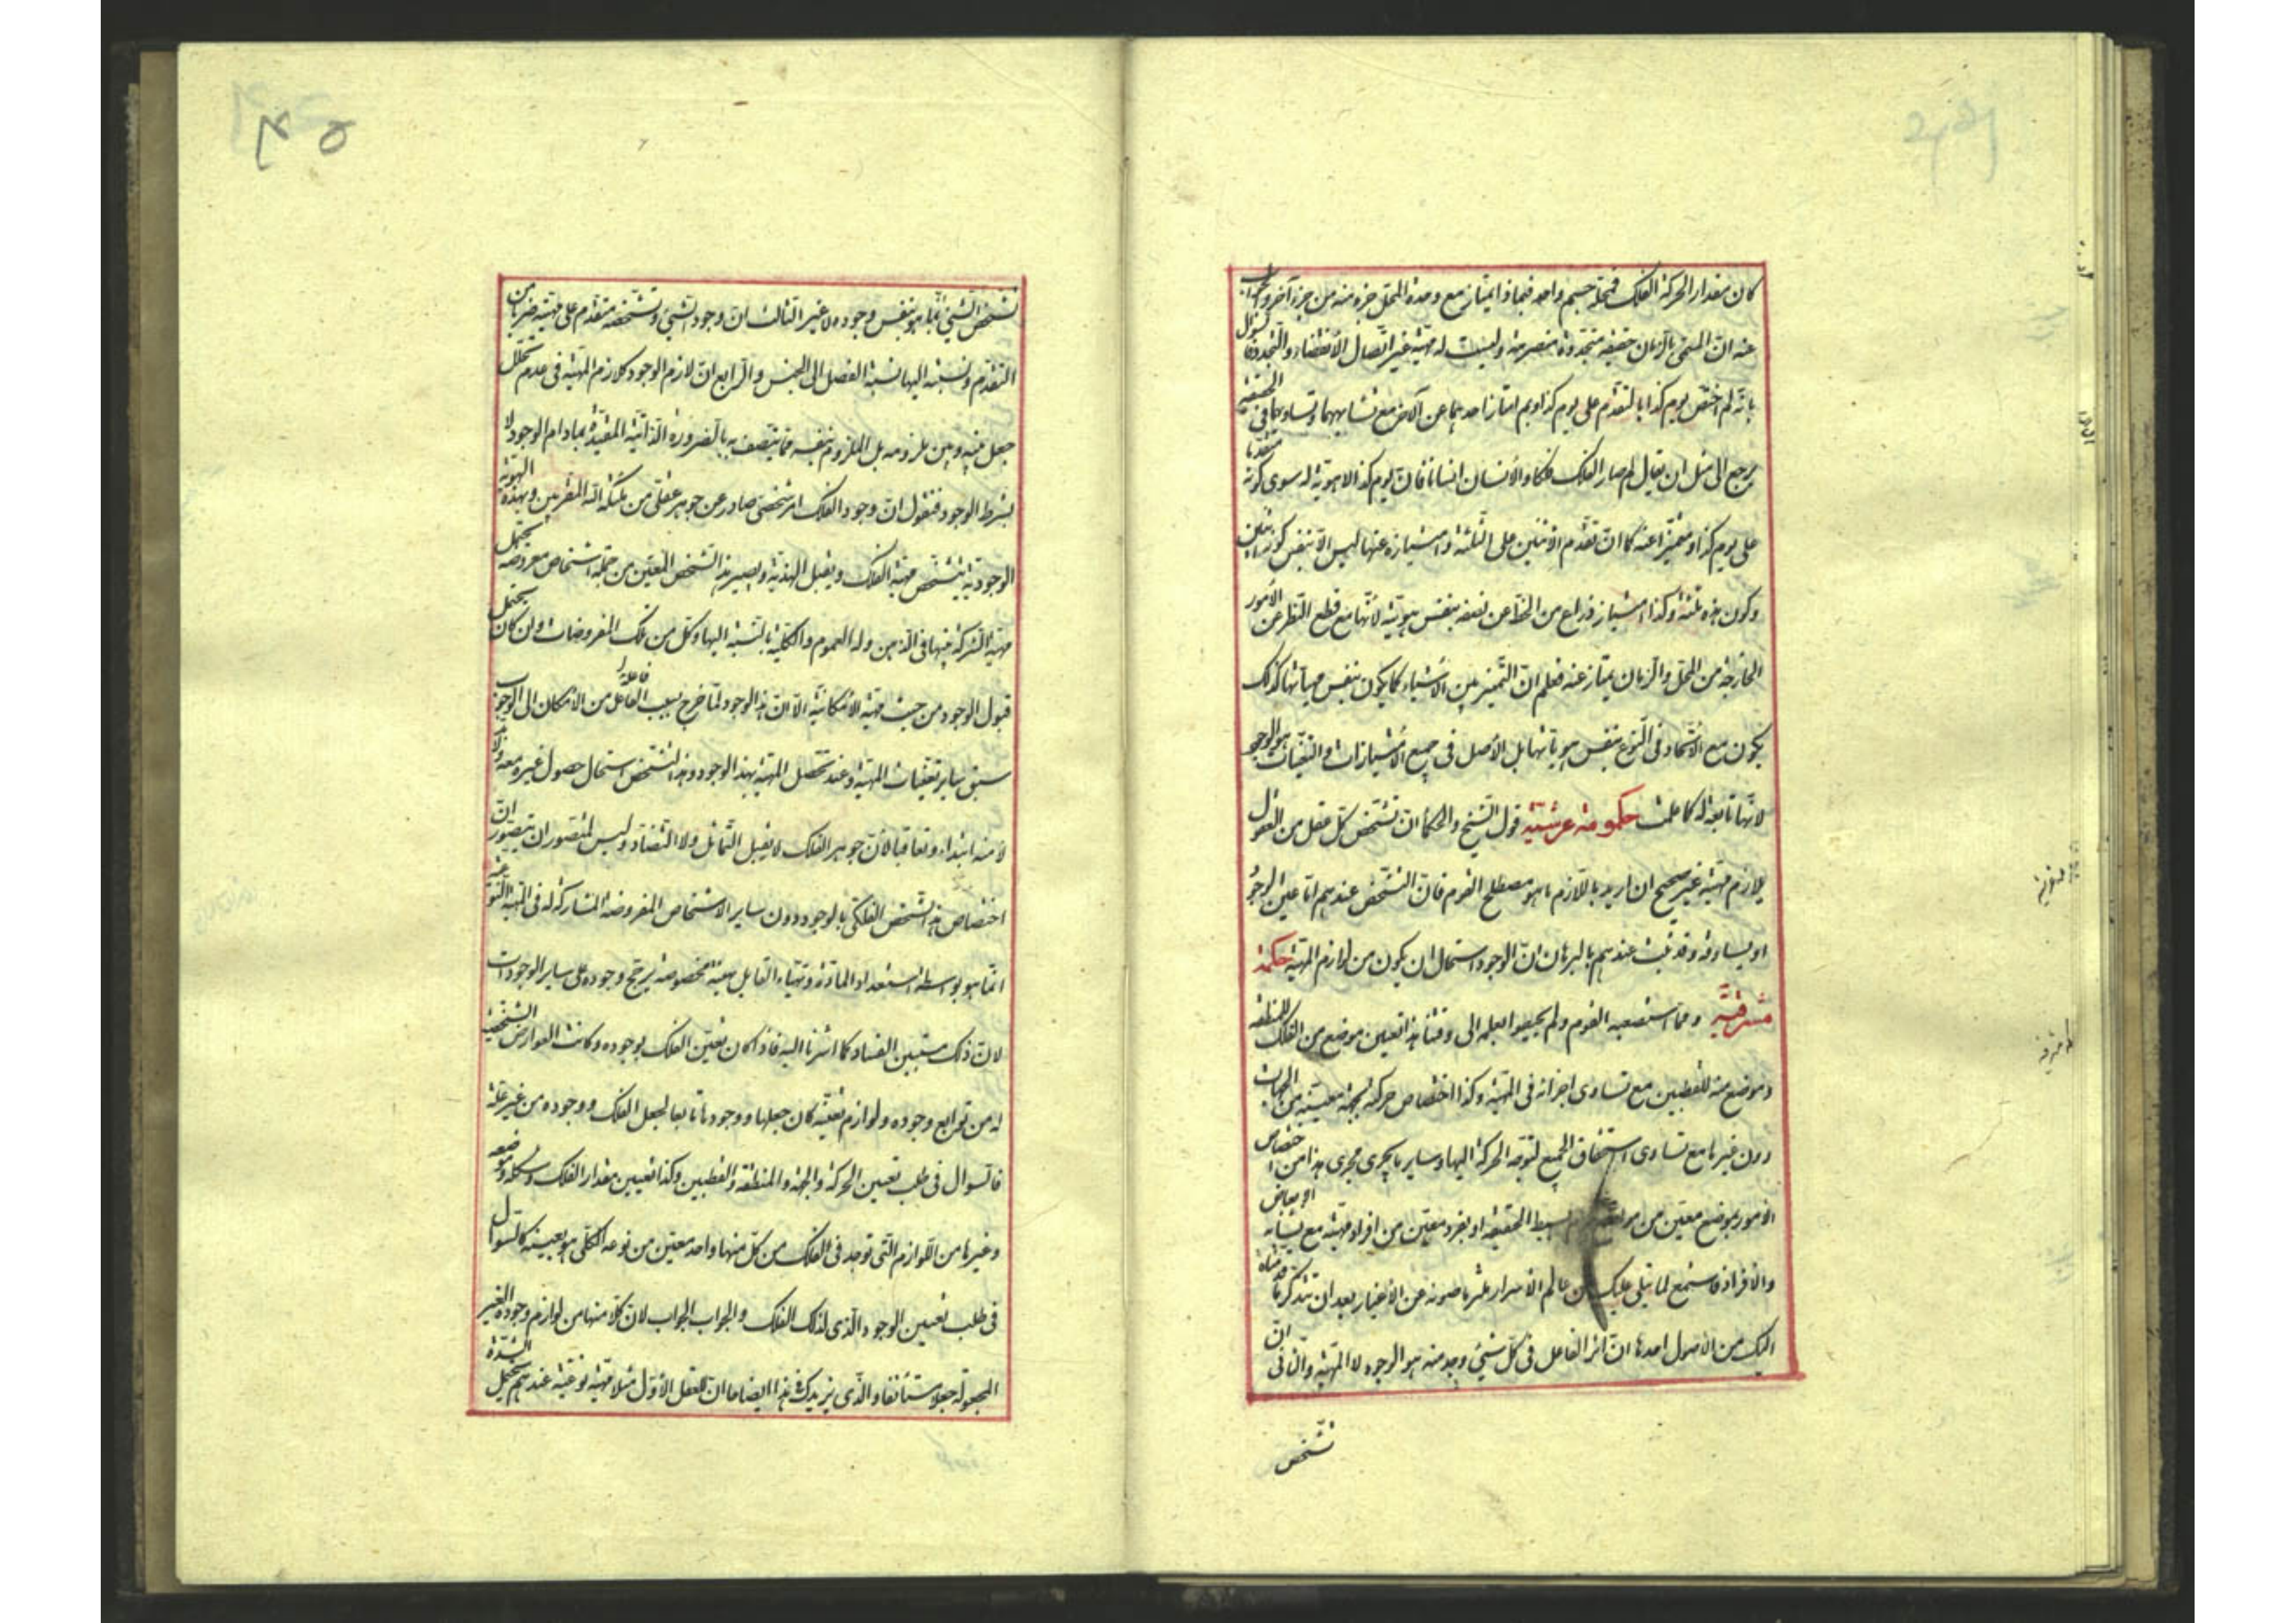 كان مقدار الحركة الفلك فمحله جسم واحد فبماذا يمتاز مع وحدة المحل جزء منه من جزء آخر والجواب
عنه ان المسمى بالزمان حقيقة متجددة متصرمة وليست له مهية غير اتصال الانقضاء والتجدد فالسؤال
بانه لم اختص يوم كذا بالتقدم على يوم كذا وبم امتاز احدهما عن الآخر مع تشابههما وتساويهما في الحقيقة
يرجع الى مثل ان يقال لم صار الفلك فلكا والانسان انسانا فان يوم كذا لا هوية له سوى كونه متقدما
على يوم كذا ومتميزا عنه كما ان تقدم الاثنين على الثلثة وامتيازه عنها ليس الا بنفس كون هذا اثنين
وكون هذه ثلثة وكذا امتياز ذراع من الخط عن نصفه بنفس هويته لانها مع قطع النظر عن الامور
الخارجة من المحل والزمان يمتاز عنه فعلم ان التميز بين الاشياء كما يكون بنفس مهياتها كذلك
يكون مع الاتحاد في النوع بنفس هوياتها بل الاصل في جميع الامتيازات والتعينات هو الوجود
لانها تابعة له كما علمت حكومة عرشية قول الشيخ والحكماء ان تشخص كل عقل من العقول
يلازم مهيته غير صحيح ان اريد باللازم ما هو مصطلح القوم فان التشخص عندهم اما عين الوجود
او يساوقه وقد ثبت عندهم بالبرهان ان الوجود استحال ان يكون من لوازم المهية حكمة
مشرقية ومما استصعبه القوم ولم يحيطوا بعلمه الى وقتنا هذا تعيين موضع من الفلك للمنطقة
وموضع منه للقطبين مع تساوى اجزائه في المهية وكذا اختصاص حركة بجهة معينة من الجهات
دون غيرها مع تساوى استحقاق الجميع لتوجه الحركة اليها وساير ما يجرى مجرى هذا من اختصاص
الامور بموضع معين من بسيط الحقيقة او بفرد معين من افراد مهيته مع تشابه الابعاض
والافراد فاستمع لما يتلى عليك من عالم الاسرار ملتزما صونه عن الاغيار بعد ان تتذكر ما قدمناه
اليك من الاصول احدها ان اثر الفاعل في كل شيء وجد منه هو الوجود لا المهية والثانى ان
تشخص
٤٥
تشخص الشيء انما هو بنفس وجوده لا غير الثالث ان وجود الشيء وتشخصه متقدم على مهيته ضربا من
التقدم ونسبته اليها نسبة الفصل الى الجنس والرابع ان لازم الوجود كلازم المهية في عدم تخلل
جعل بينه وبين ملزومه بل الملزوم بنفسه مما يتصف به بالضرورة الذاتية المقيدة بمادام الوجود لا
بشرط الوجود فنقول ان وجود الفلك امر شخصى صادر عن جوهر عقلى من ملئكة الله المقربين وبهذه الهوية
الوجودية يتشخص مهية الفلك ويقبل الهذية ويصير هذا الشخص المعين من جملة اشخاص مفروضة تحتمل
مهيته الشركة بينها في الذهن وله العموم والكلية بالنسبة اليها وكل من تلك المفروضات وان كان يحتمل
قبول الوجود من حيث مهيته الامكانية الا ان هذا الوجود لما خرج بسبب الفاعل من الامكان الى الوجوب
سبق ساير تعينات المهية وعند تحصل المهية بهذا الوجود وهذا التشخص استحال حصول غيره معه
لا منه ابتداء وتعاقبا لان جوهر الفلك لا يقبل التماثل ولا التضاد وليس لمتصور ان يتصور ان
اختصاص هذا الشخص الفلكى بالوجود دون ساير الاشخاص المفروضة المشاركة له في المهية النوعية
انما هو بواسطة استعداد المادة وتهيؤ القابل بهيئة مخصوصة يرجح وجوده على ساير الوجودات
لان ذلك مستبين الفساد كما اشرنا اليه فاذا كان تعين الفلك بوجوده وكانت العوارض الشخصية
له من توابع وجوده ولوازم تعينه كان جعلها ووجودها تابعا لجعل الفلك ووجوده من غير علة
فالسؤال في طلب تعيين الحركة والجهة والمنطقة والقطبين وكذا تعيين مقدار الفلك وشكله وموضعه
وغيرها من اللوازم التى توجد في الفلك من كل منها واحد معين من نوعه الكلى هو بعينه كالسؤال
في طلب تعيين الوجود الذى لذلك الفلك والجواب الجواب لان كلا منها من لوازم وجوده الغير
المجعولة جعلا مستأنفا والذى يزيدك هذا ايضاحا ان للعقل الاول مثلا مهية نوعية عندهم تحتمل